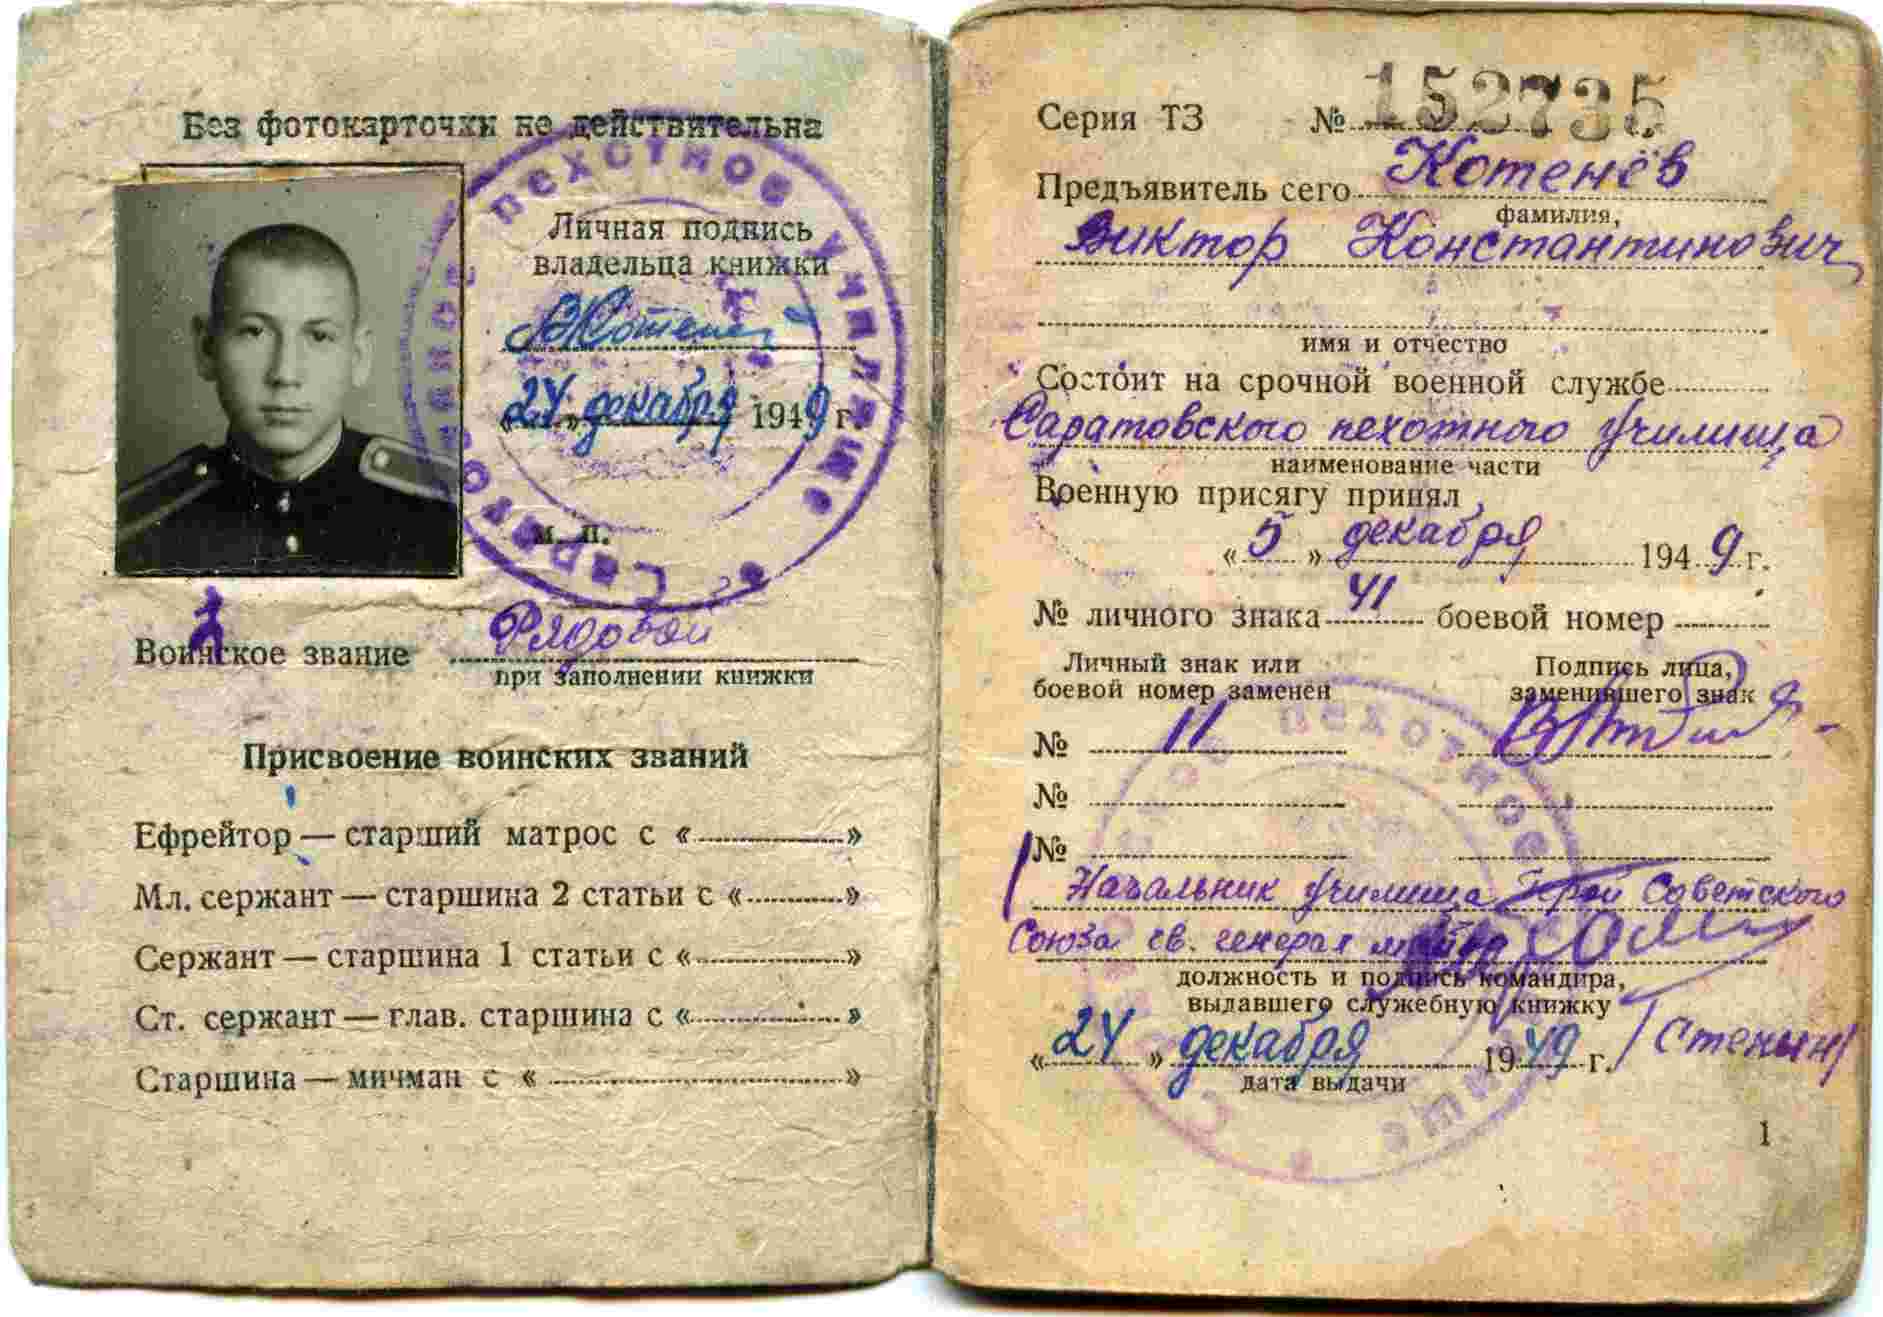 Без фотокарточки не действительна
Саратовское пехотное училище
Личная подпись
владельца книжки
ВКотенев
«24» декабря 1949 г.
М. П.
Воинское звание Рядовой
при заполнении книжки
Присвоение воинских званий
Ефрейтор — старший матрос с « »
Мл. сержант — старшина 2 статьи с « »
Сержант — старшина 1 статьи с « »
Ст. сержант — глав. старшина с « »
Старшина — мичман с « »
Серия ТЗ № 152735
Предъявитель сего Котенёв
фамилия,
Виктор Константинович
имя и отчество
Состоит на срочной военной службе
Саратовского пехотного Училища
наименование части
Военную присягу принял
«5» декабря 1949 г.
№ личного знака 41 боевой номер
Личный знак или Подпись лица,
боевой номер заменен заменившего знак
№ 11
№
№
Начальник училища Герой Советского
Союза гв. генерал майор
должность и подпись командира,
выдавшего служебную книжку
«24» декабря 1949 г. /Стенин/
дата выдачи
1